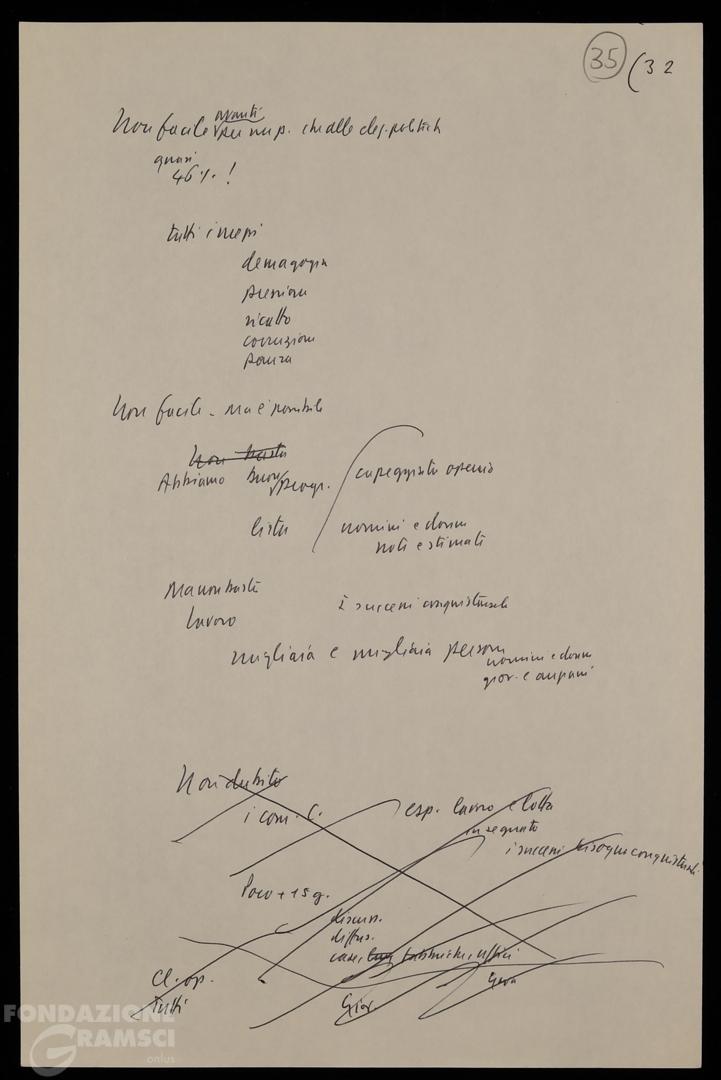 35 (32
Non facile avanti per nup. che alle elez. politich
quasi
46%!
tutti i mezzi
demagogia
pressioni
ricatto
corruzione
paura
Non facile - ma è possibile
Non basta
Abbiamo buon progr. capeggiata operaio
lista uomini e donne
noti e stimati
Ma non basta
lavoro I successi conquistarseli
migliaia e migliaia persone
uomini e donne
giov. e anziani
Non dubito
i com. C. esp. lavoro e lotta
insegnato
i successi bisogna conquistarseli
Poco + 15 g.
discuss.
diffus.
case, fabbriche, uffici
Cl. op.
tutti Giov.
FONDAZIONE
GRAMSCI
onlus